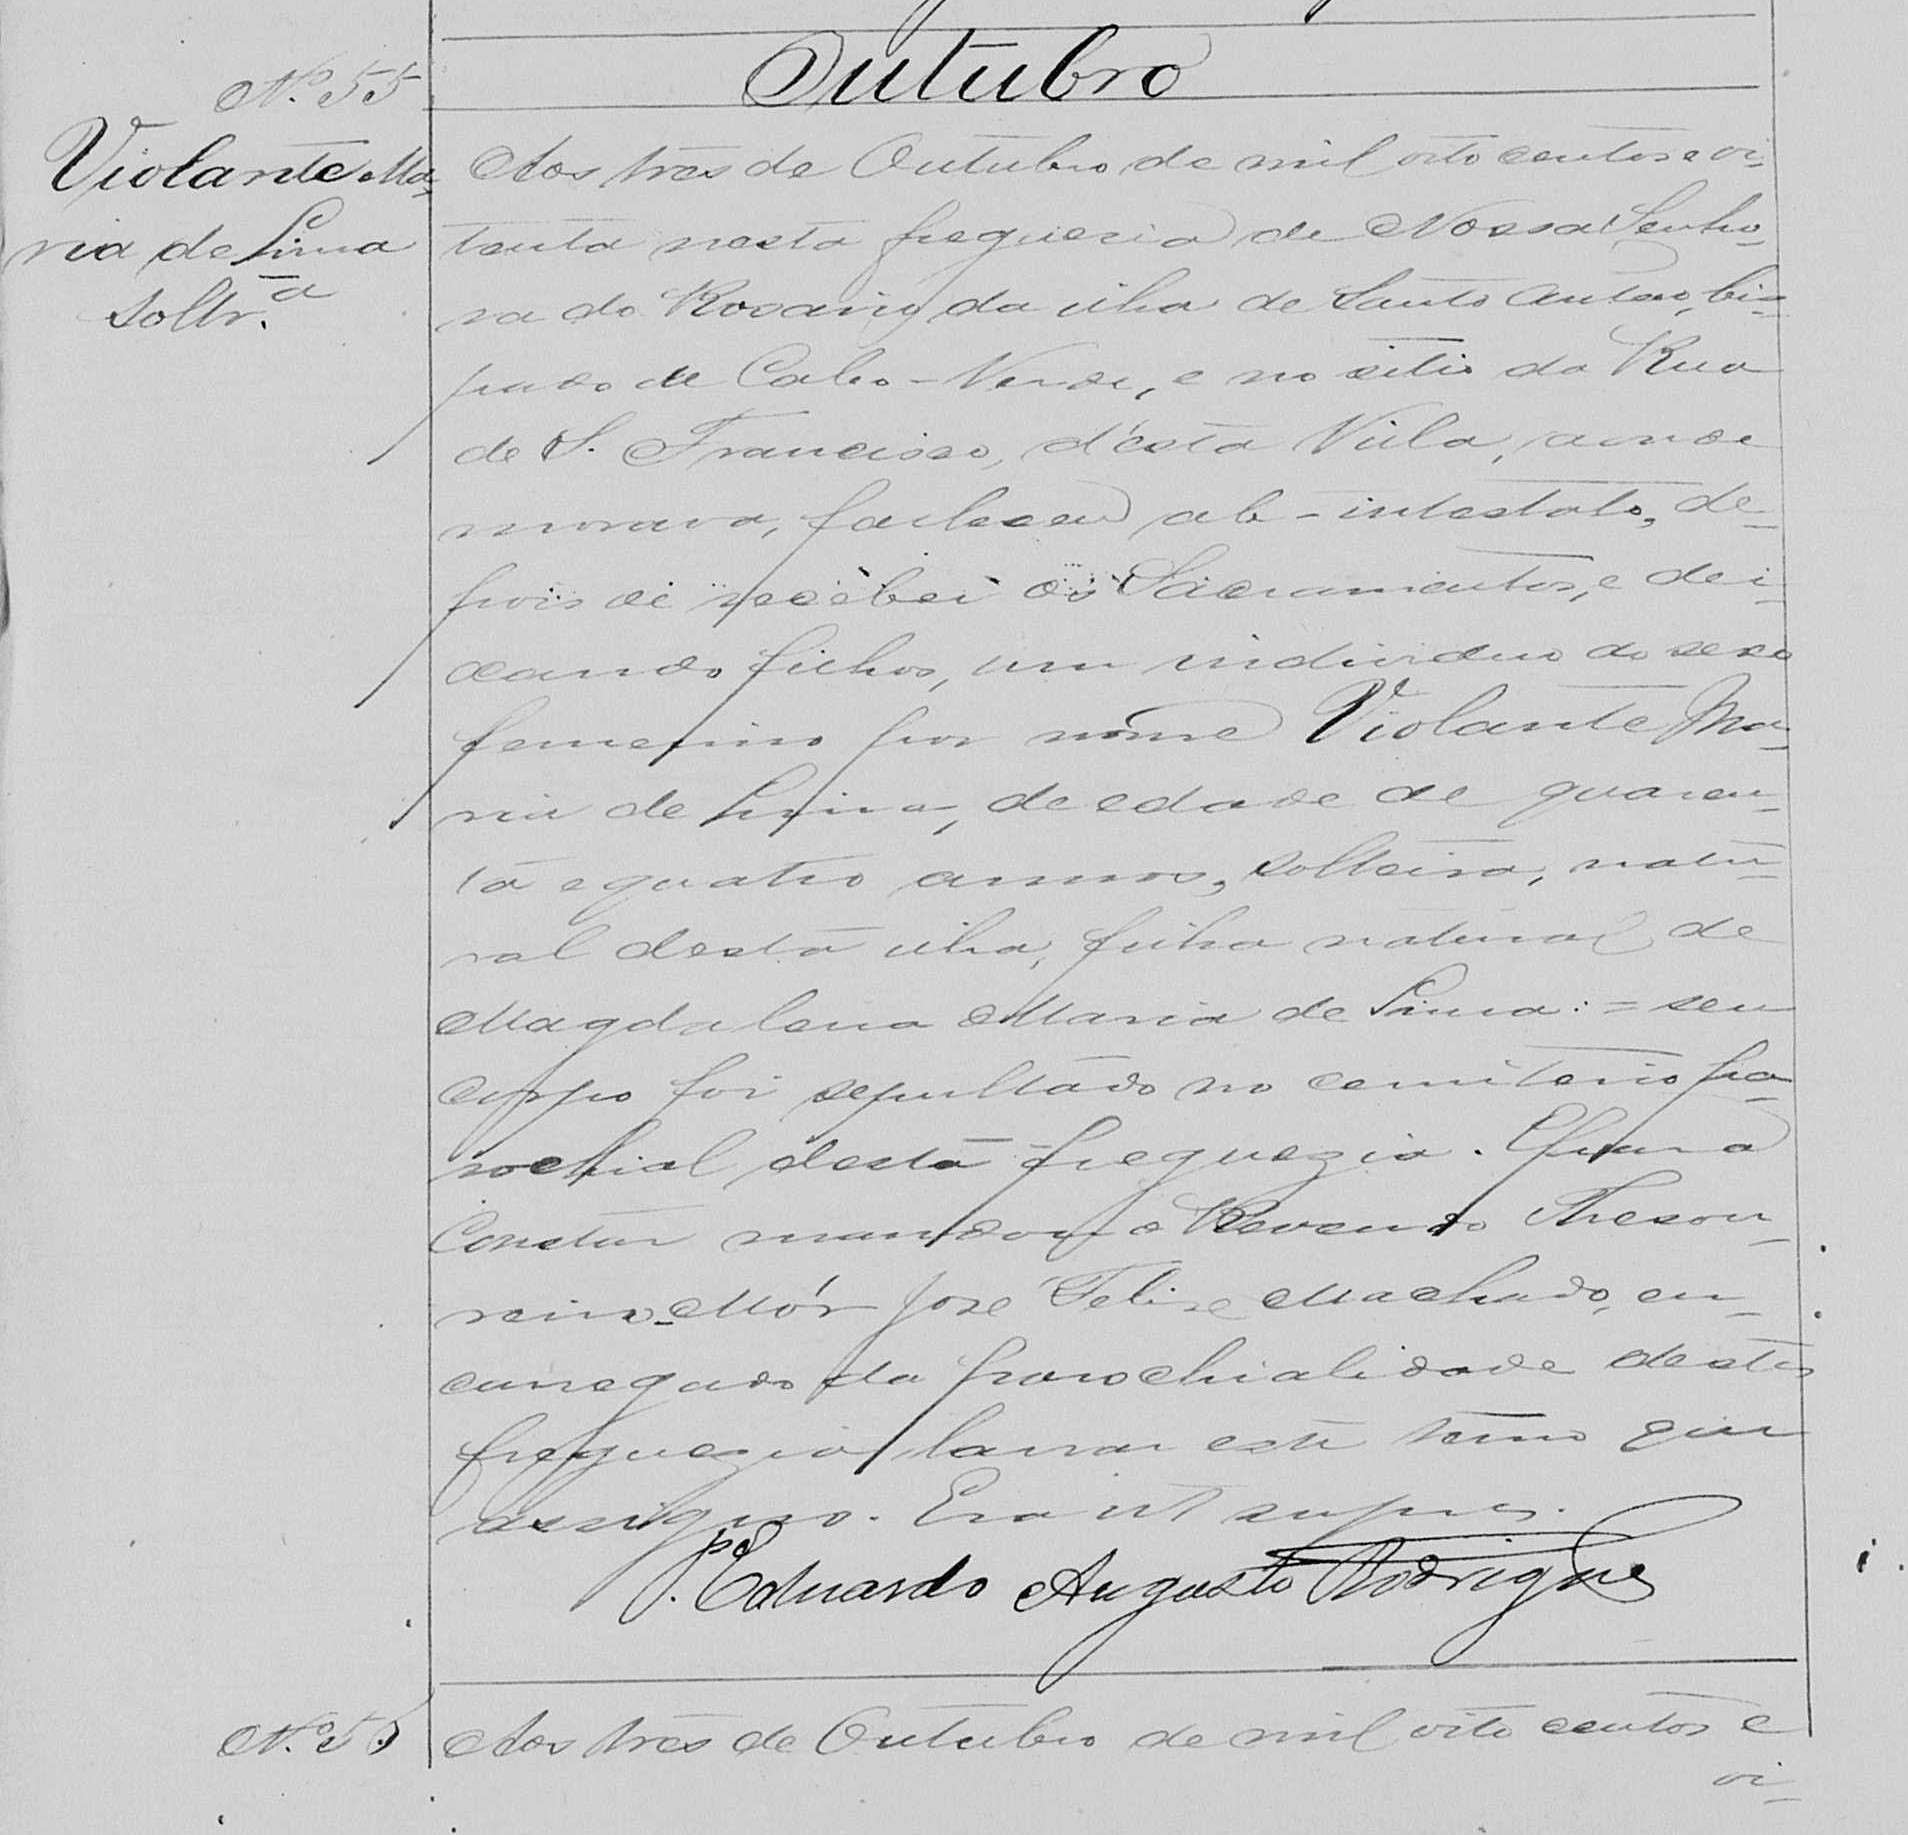 Outubro
Nº 55
Violante Ma-
ria de Lima
soltrª
Aos tres de Outubro de mil oito centos e oi-
tenta nesta freguezia de Nossa Senho-
ra do Rosario da ilha de Santo Antão, bis-
pado de Cabo-Verde, e no sitio da Rua
de S. Francisco, d'esta Villa, aonde
morava, falleceu ab-intestato, de-
pois de receber os Sacramentos, e dei-
xando filhos, um individuo do sexo
femenino por nome Violante Ma-
ria de Lima, de edade de quaren-
ta e quatro annos, solteira, natu-
ral desta ilha, filha natural de
Magdalena Maria de Lima: = seu
corpo foi sepultado no cemiterio pa-
rochial desta freguezia. E para
constar mandou o Reverendo Thesou-
reiro-Mór José Felix Machado, en-
carregado da parochialidade desta
freguezia lavrar este termo que
assigno. Era ut supra.
P. Eduardo Augusto Rodrigues
Nº 56
Aos tres de Outubro de mil oito centos e
oi-